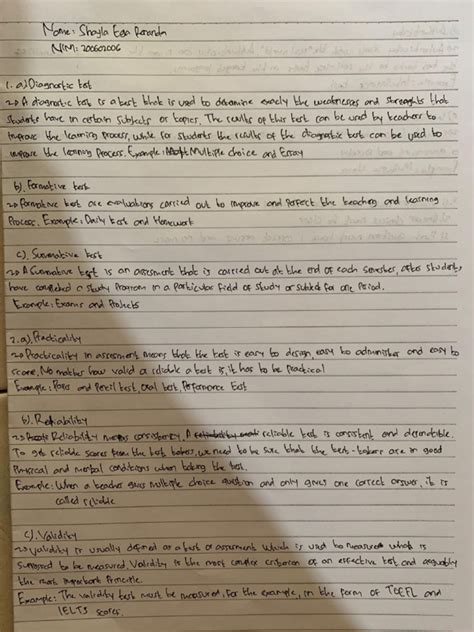 Name: Shayla Eda
NIM: 200602006
1. a) Diagnostic test
A diagnostic test is a test that is used to determine exactly the weaknesses and strenghts that
students have in certain subjects or topics. The results of this test can be used by teachers to
improve the learning process, while for students the results of the diagnostic test can be used to
improve the learning process. Example: Multiple choice and Essay
b). Formative test
Formative test are evaluations carried out to improve and perfect the teaching and learning
Process. Example: Daily test and Homework
c). Summative test
A Summative test is an assessment that is carried out at the end of each semester, after students
have completed a study Program in a particular field of study or subject for one Period.
Example: Exams and Projects
2. a). Practicality
Practicality in assessment means that the test is easy to design, easy to administer and easy to
score. No matter how valid a reliable a test is, it has to be practical
Example: Paper and Pencil test, Oral test, Performance test
b). Reliability
Reliability means consistency. A reliable test is consistent and
To get reliable scores from the test takers, we need to be sure that the test-takers are in good
Physical and mental conditions when taking the test.
Example: When a teacher gives multiple choice question and only gives one correct answer, it is
called reliable
c). Validity
validity is usually defined as a test or assessment which is used to measure what is
supposed to be measured. Validity is the most complex criterion of an effective test and arguably
the most important Principle.
Example: The validity test must be measured. For the example, in the form of TOEFL and
IELTS scores.